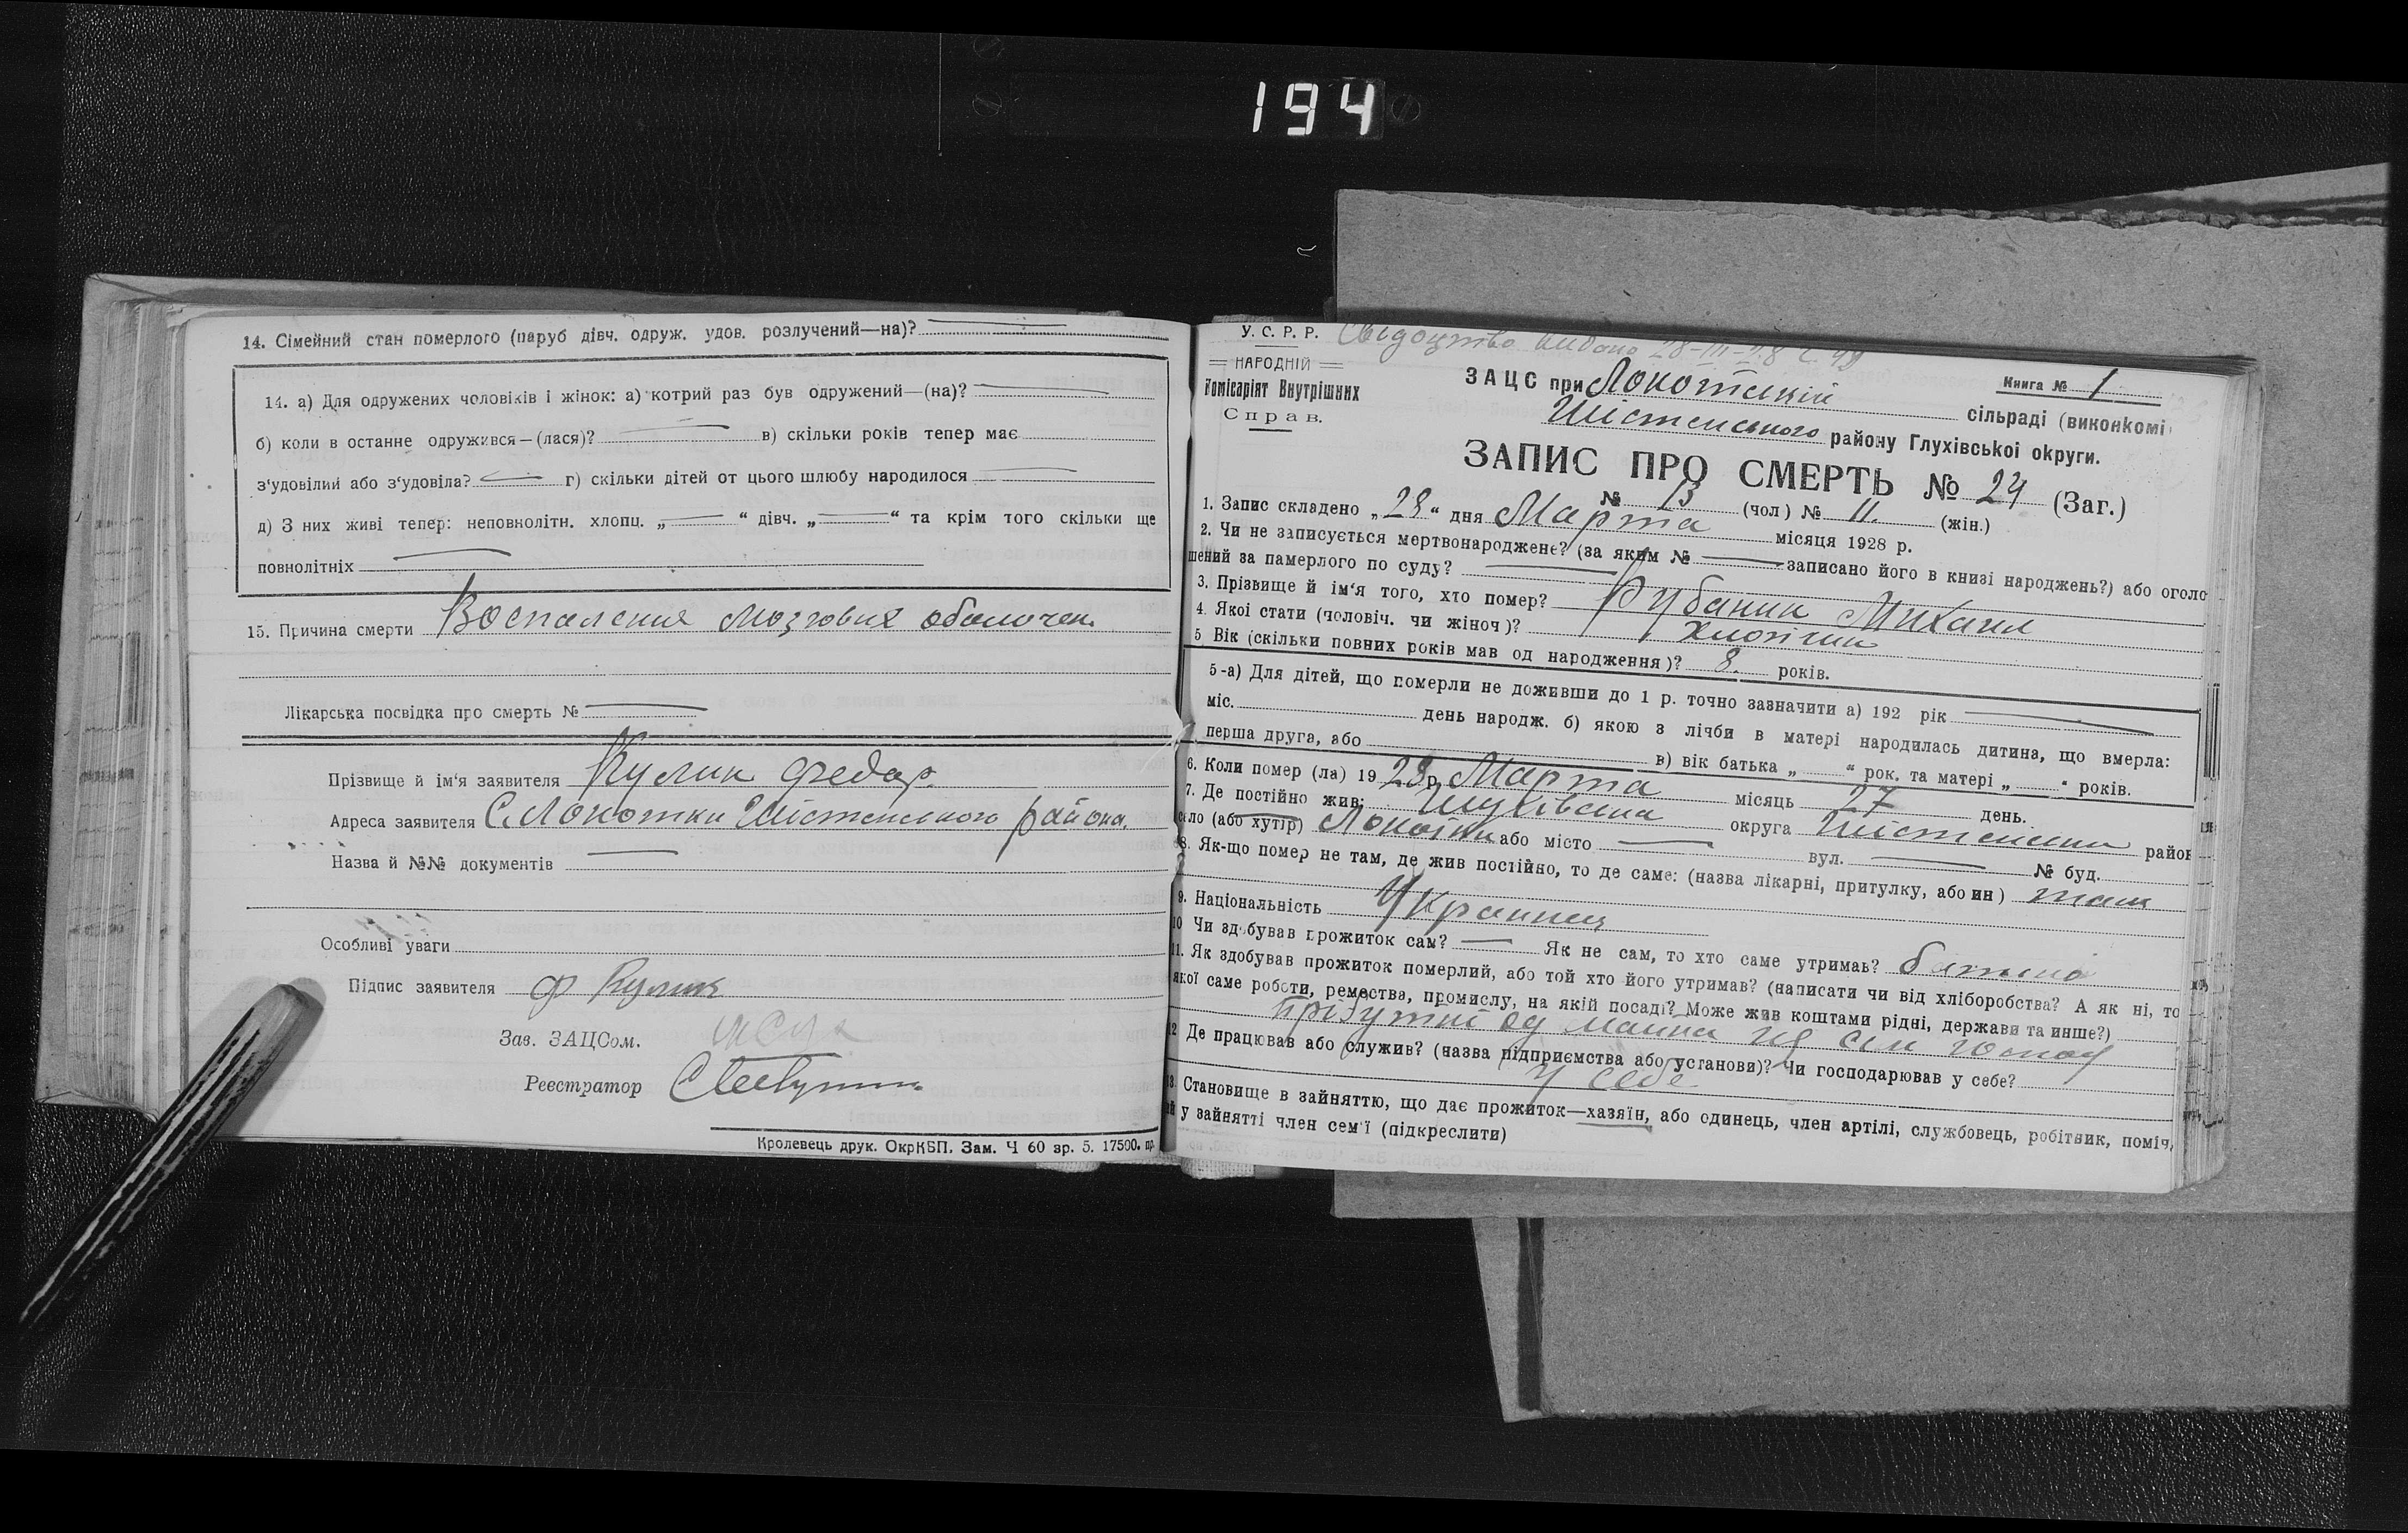 194
14. Сімейний стан померлого (паруб дівч. одруж. удов. розлучений—на)?
14. а) Для одружених чоловіків і жінок: а) котрий раз був одружений—(на)?
б) коли в останне одружився—(лася)? в) скільки років тепер має
з'удовілий або з'удовіла? г) скільки дітей от цього шлюбу народилося
д) З них живі тепер: неповнолітн. хлопц. „ — “ дівч. „ — “ та крім того скільки ще
повнолітніх
15. Причина смерти Воспаления мозговых оболочек
Лікарська посвідка про смерть №
Прізвище й ім'я заявителя Кулик Федор
Адреса заявителя С. Локотки Шістенського района.
Назва й №№ документів
Особливі уваги
Підпис заявителя Ф Кулик
Зав. ЗАЦСом.
Реестратор
Кролевець друк. ОкрКБП. Зам. Ч 60 зр. 5. 17500. пр.
У. С. Р. Р. Свідоцтво видано 28-III-28 с. 49
НАРОДНІЙ
Комісаріят Внутрішних
Справ.
ЗАЦС при Локотській сільраді (виконкомі
Книга № 1
Шістенського району Глухівської округи.
ЗАПИС ПРО СМЕРТЬ № 24 (Заг.)
№ 13 (чол) № 11. (жін.)
1. Запис складено „28“ дня Марта місяця 1928 р.
2. Чи не записується мертвонароджене? (за яким № — записано його в книзі народжень?) або оголо
шений за памерлого по суду?
3. Прізвище й ім'я того, хто помер? Рубаник Михаил
4. Якої стати (чоловіч. чи жіноч)? Хлопчик
5 Вік (скільки повних років мав од народження)? 8. років.
5-а) Для дітей, що померли не доживши до 1 р. точно зазначити а) 192 рік
міс. день народж. б) якою з лічби в матері народилась дитина, що вмерла:
перша друга, або в) вік батька „ “ рок. та матері „ “ років.
6. Коли помер (ла) 1928 р. Марта місяць 27 день.
7. Де постійно жив: Глухівська округа Шістенськи район
село (або хутір) Локотки або місто — вул. — № буд.
8. Як-що помер не там, де жив постійно, то де саме: (назва лікарні, притулку, або ин) там
9. Національність Украинец
10 Чи здобував прожиток сам? — Як не сам, то хто саме утримав? батько
11. Як здобував прожиток померлий, або той хто його утримав? (написати чи від хліборобства? А як ні, то
якої саме роботи, ремества, промислу, на якій посаді? Може жив коштами рідні, держави та инше?)
12 Де працював або служив? (назва підприємства або установи)? Чи господарював у себе?
у себе
13. Становище в зайняттю, що дає прожиток—хазяїн, або одинець, член артілі, службовець, робітник, поміч,
у зайнятті член сем'ї (підкреслити)